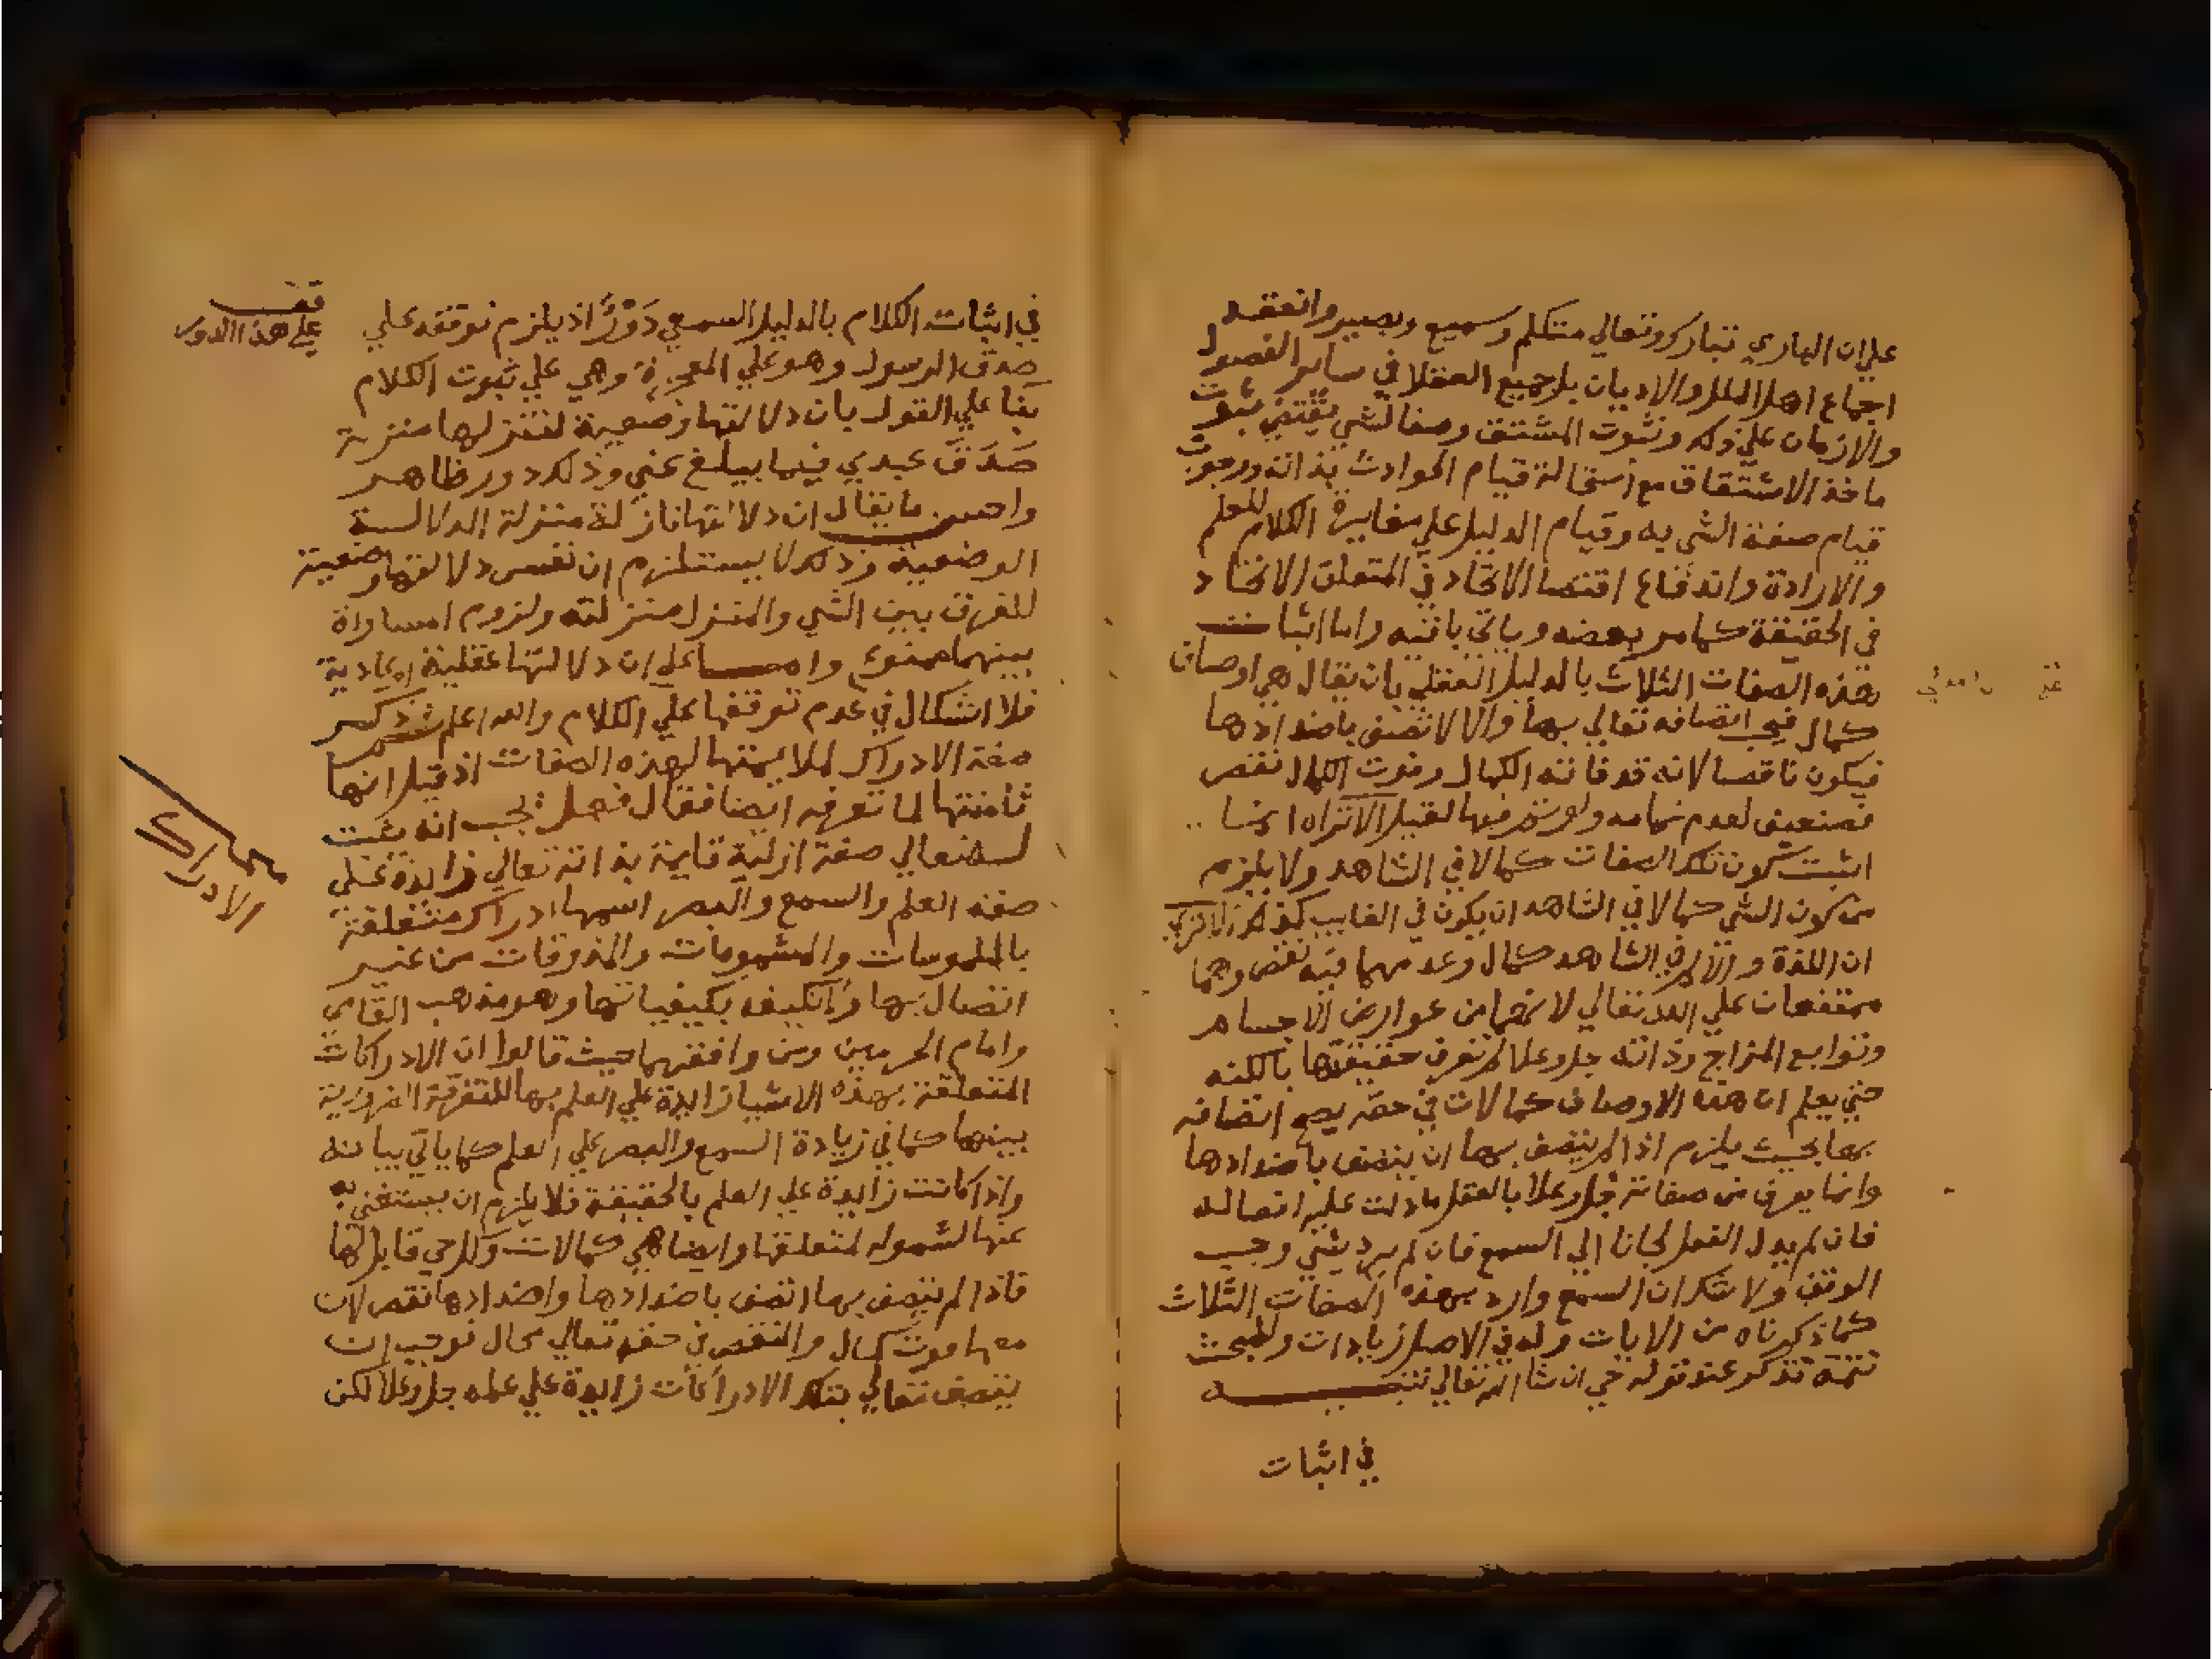 علي ان الباري تبارك وتعالي متكلم وسميع وبصير وانعقد
اجماع اهل الملل والاديان بل جميع العقلا في ساير الفصول
والازمان علي ذلك وثبوت المشتق وصفا لشي يقتضي ثبوت
ماخذ الاشتقاق مع استحالة قيام الحوادث بذاته ووجوب
قيام صفة الشي به وقيام الدليل علي مغايرة الكلام للعلم
والارادة واندفاع اقتضا الاتحاد في المتعلق الاتحاد
في الحقيقة كما مر بعضه وياتي باقيه واما اثبات
هذه الصفات الثلاث بالدليل العقلي بان يقال هي اوصاف
كمال فيجب اتصافه تعالي بها والا لاتصف باضدادها
فيكون ناقصا لانه قد فاته الكمال وفوت الكمال نقص
فضعيف لعدم تمامه ولو فيها لقيل الا تراه انما
اثبت كون تلك الصفات كمالا في الشاهد ولا يلزم
من كون الشي كمالا في الشاهد ان يكون في الغايب كذلك الا تري
ان اللذة والالم في الشاهد كمال وعدمهما فيه نقص وهما
ممتنعان علي الله تعالي لانهما من عوارض الاجسام
وتوابع المزاج وذاته جل وعلا لم تعرف حقيقتها بالكنه
حتي يعلم ان هذه الاوصاف كمالات في حقه يصح اتصافه
بها بحيث يلزم اذا لم يتصف بها ان يتصف باضدادها
وانما يعرف من صفاته جل وعلا بالعقل ما دلت عليه افعاله
فان لم يدل الفعل لجانا الي السمع فان لم يرد بشي وجب
الوقف ولا شك ان السمع وارد بهذه الصفات الثلاث
كما ذكرناه من الايات وله في الاصل زيادات وللمبحث
تتمة تذكر عند قوله حي ان شا الله تعالي تنبيه
في اثبات
في اثبات الكلام بالدليل السمعي دَوْرٌ اذ يلزم توقفه علي
صدق الرسول وهو علي المعجزة وهي علي ثبوت الكلام
بنا علي القول بان دلالتها وضعية لتنزلها منزلة
صَدَقَ عبدي فيما يبلغ عني وذلك دور ظاهر
واحسن ما يقال ان دلالتها نازلة منزلة الدلالة
الوضعية وذلك لا يستلزم ان نفس دلالتها وضعية
للفرق بين الشي والمنزل منزلته ولزوم المساواة
بينهما ممنوع واما علي ان دلالتها عقلية او عادية
فلا اشكال في عدم توقفها علي الكلام والله اعلم ثم ذكر
صفة الادراك لملايمتها لهذه الصفات اذ قيل انها
ثامنتها لما تعرفه ايضا فقال فهل يجب انه ثبت
له تعالي صفة ازلية قايمة بذاته تعالي زايدة علي
صفة العلم والسمع والبصر اسمها ادراك متعلقة
بالملموسات والمشمومات والمذوقات من غير
اتصال بها ولا تكيف بكيفياتها وهو مذهب القاضي
وامام الحرمين ومن وافقهما حيث قالوا ان الادراكات
المتعلقة بهذه الاشيا زايدة علي العلم بها للتفرقة الضرورية
بينهما كما في زيادة السمع والبصر علي العلم كما ياتي بيانه
واذا كانت زايدة علي العلم بالحقيقة فلا يلزم ان يستغني به
عنها لشموله لمتعلقها وايضا هي كمالات وكل حي قابل لها
فاذا لم يتصف بها اتصف باضدادها واضدادها نقص لان
معها فوت كمال والنقص في حقه تعالي محال فوجب ان
يتصف تعالي بتلك الادراكات زايدة علي علمه جل وعلا لكن
قف
علي هذا الدور
الادراك